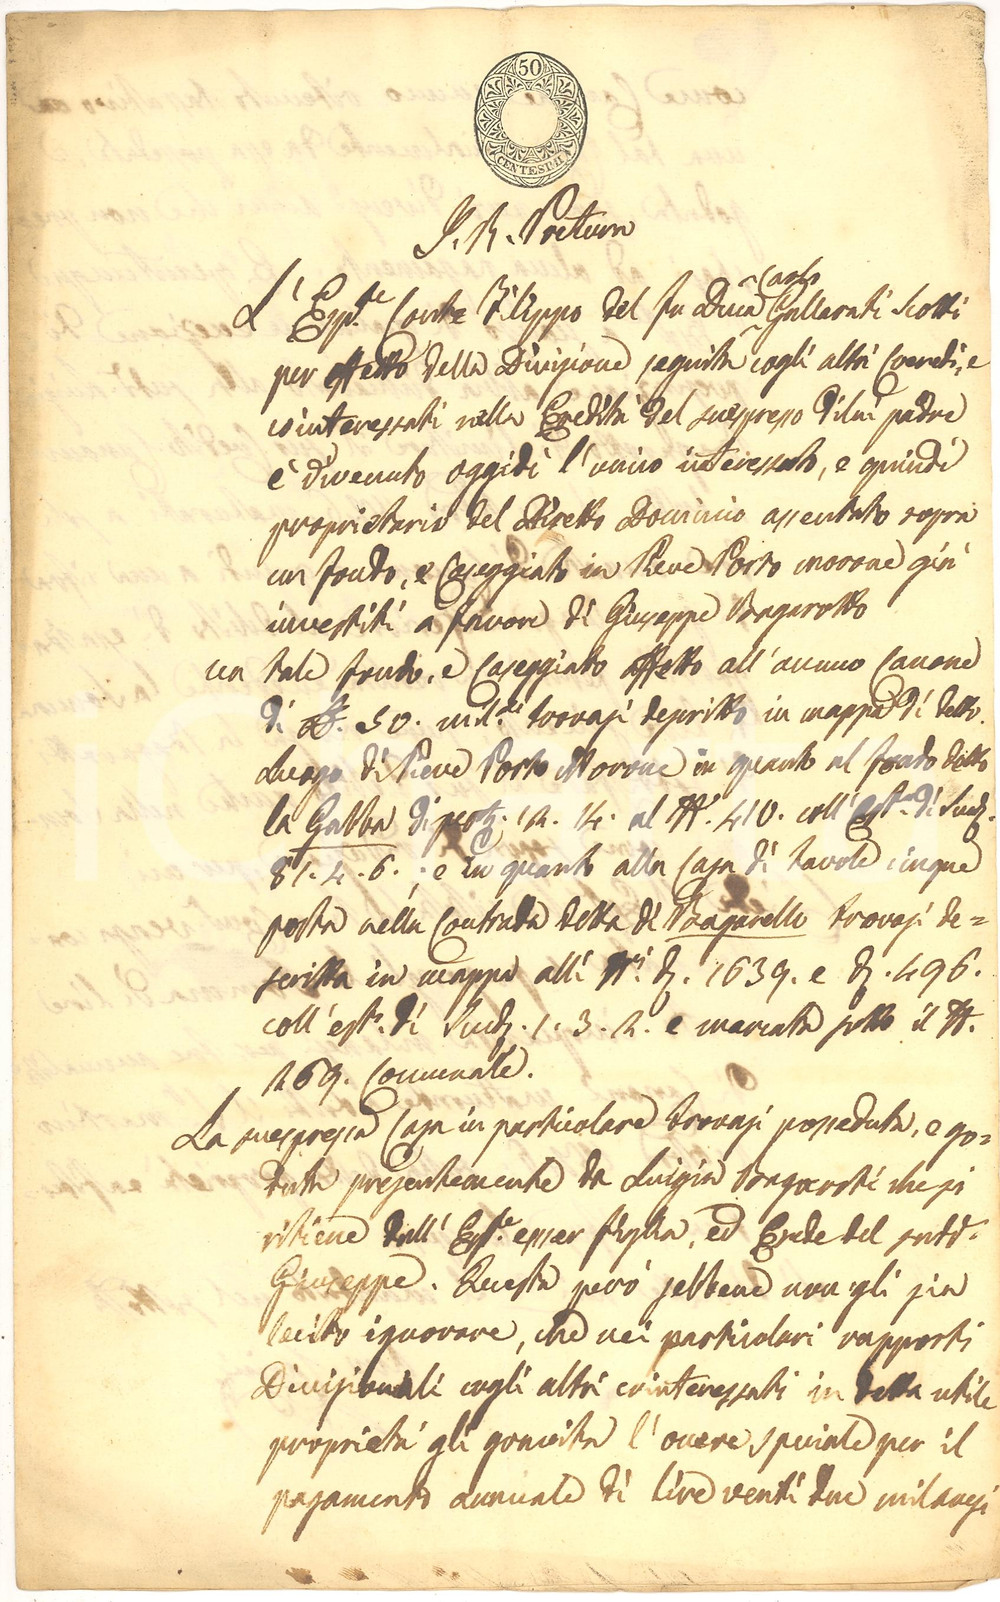 50
CENTESIMI
I. R. Pretura
Carlo
L' Esp.te Conte Filippo del fu Duca Gallarati Scotti
per effetto della Divisione seguita cogli altri Coeredi, e
cointeressati nella Eredità del suespresso di lui padre
è divenuto oggidì l'unico interessato, e quindi
proprietario del Diretto Dominio assentato sopra
un fondo, e Caseggiato in Pieve Porto morone già
investiti a favore di Giuseppe Bagarotto
un tale fondo, e Caseggiato affetto all'annuo Canone
di 50. mil.si trovasi descritto in mappa di detto
Luogo di Pieve Porto Morone in quanto al fondo detto
la Gabba di pert. 12. 14. al N. 410. coll'est.o di Scud.
81. 4. 6. : e in quanto alla Casa di tavole cinque
posta nella Contrada detta di Bagarello trovasi de=
scritta in mappa alli N.ri 1639. e 496.
coll'est.o di Scud. 1. 3. 2. e marcata sotto il N.
269. Comunale.
La suespressa Casa in particolare trovasi posseduta, e go=
duta presentemente da Luigia Bagarotti che si
ritiene dall' Esp.te esser figlia, ed Erede del sudd.o
Giuseppe. Questa però sebbene non gli sia
lecito ignorare, che nei particolari rapporti
Divisionali cogli altri cointeressati in detta utile
proprietà gli gravita l'onere speciale per il
pagamento annuale di lire venti due milanesi